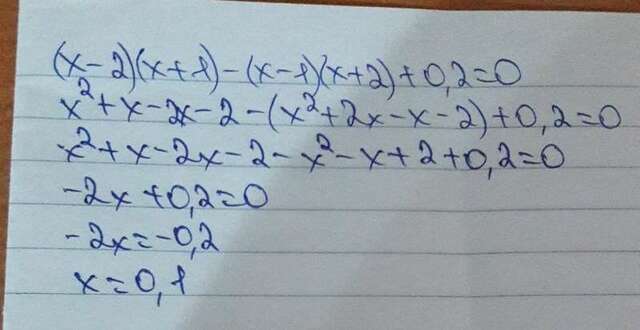 (x-2)(x+1)-(x-1)(x+2)+0,2=0
x²+x-2x-2-(x²+2x-x-2)+0,2=0
x²+x-2x-2-x²-x+2+0,2=0
-2x+0,2=0
-2x=-0,2
x=0,1